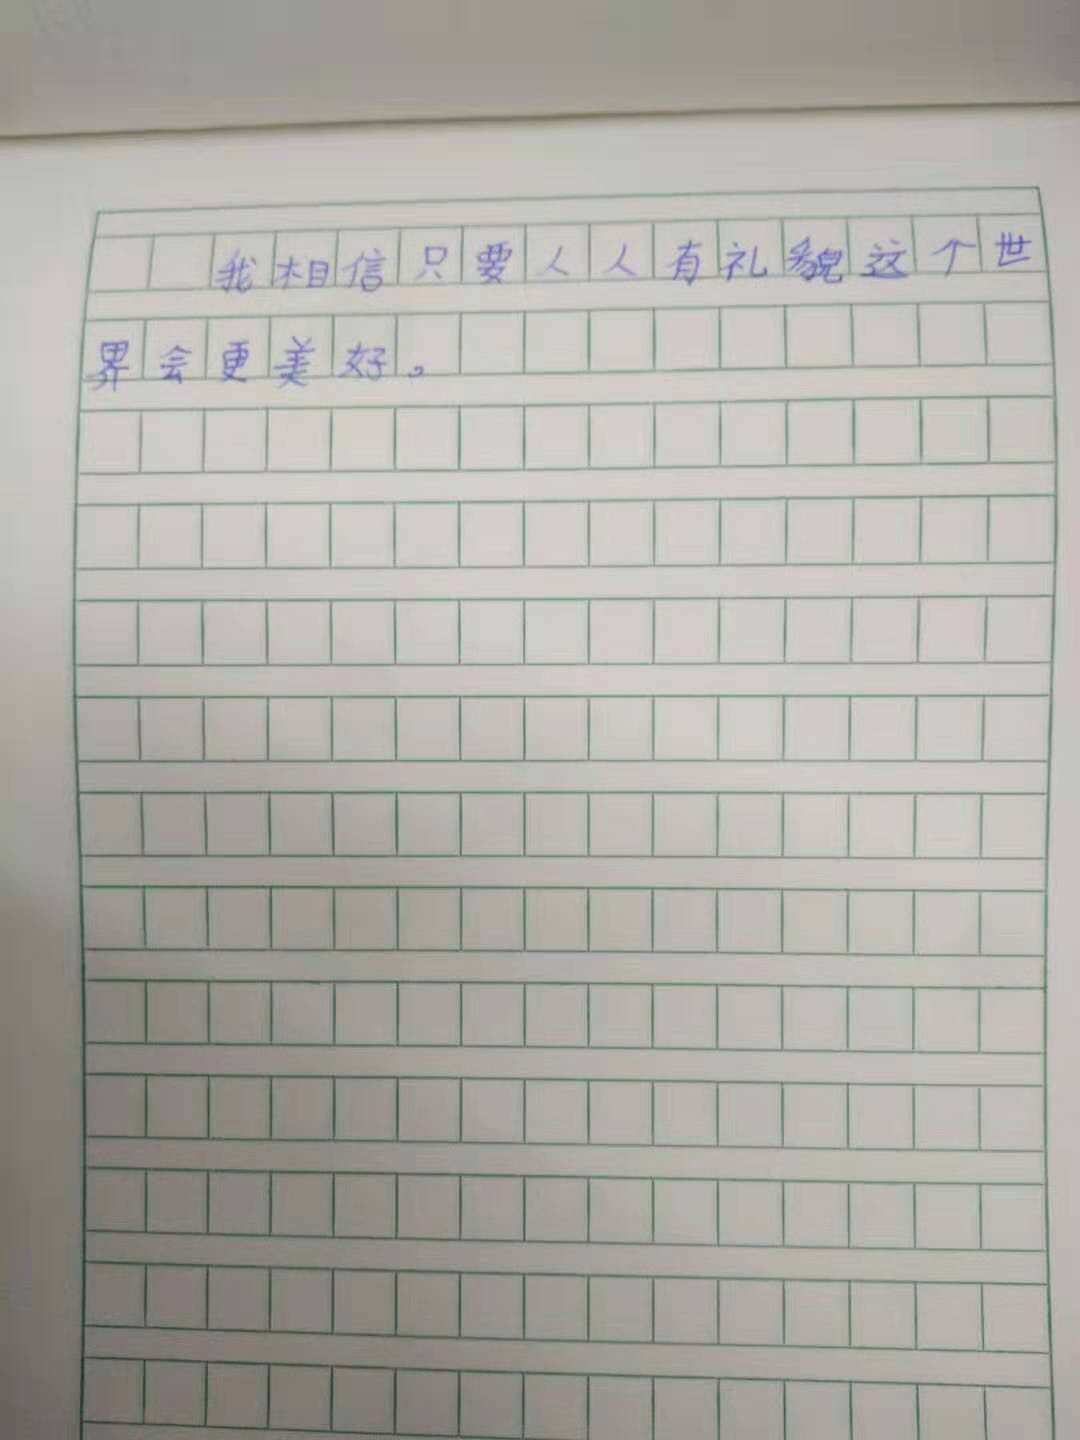 我相信只要人人有礼貌这个世
界会更美好。